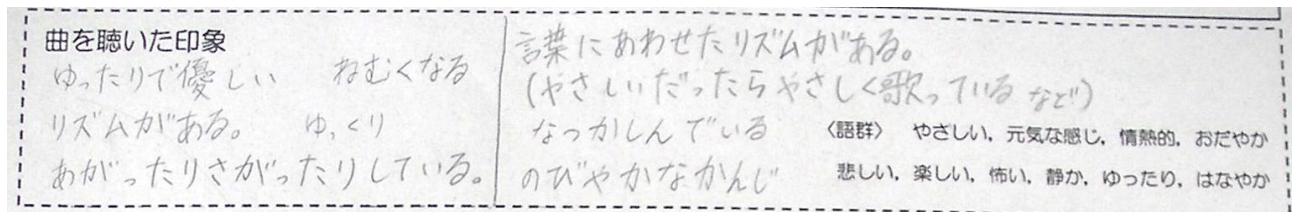 曲を聴いた印象
ゆったりで優しい ねむくなる
リズムがある。 ゆっくり
あがったりさがったりしている。
言葉にあわせたリズムがある。
(やさしいだったらやさしく歌っている など)
なつかしんでいる
のびやかなかんじ
〈語群〉 やさしい，元気な感じ，情熱的，おだやか
悲しい，楽しい，怖い，静か，ゆったり，はなやか